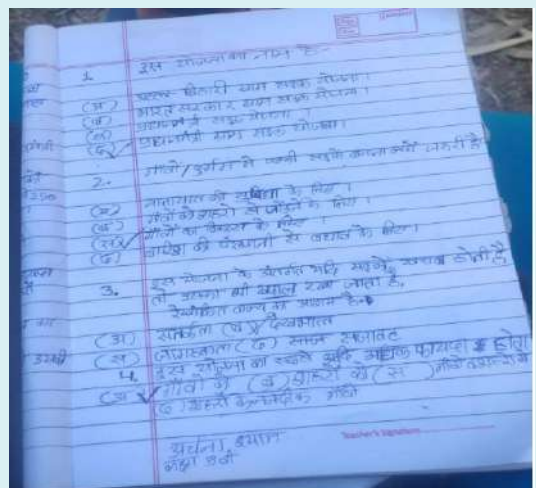 1. इस योजना का नाम है-
(अ) अटल बिहारी ग्राम सड़क योजना।
(ब) भारत सरकार ग्राम सड़क योजना।
(स) प्रधानमंत्री सड़क योजना।
(द) प्रधानमंत्री ग्राम सड़क योजना।
2. गांवों / दुर्गम में पक्की सड़कें बनाना क्यों जरूरी है?
(अ) यातायात की सुविधा के लिए।
(ब) गाँवों को शहरों से जोड़ने के लिए।
(स) गाँवों का विकास के लिए।
(द) बारिश की परेशानी से बचाने के लिए।
3. इस योजना के अंतर्गत यदि सड़कें खराब होती है,
तो उसका भी ख्याल रखा जाता है,
रेखांकित वाक्य का आशय है-
(अ) सतर्कता (ब) देखभाल
(स) जागरूकता (द) साज सजावट
4. इस योजना का सबसे अधिक फायदा होगा
(अ) गाँवों को (ब) शहरों को (स)
(द) शहरों के नजदीक गाँवों
अर्चना
कक्षा 8वीं
Teacher's Signature